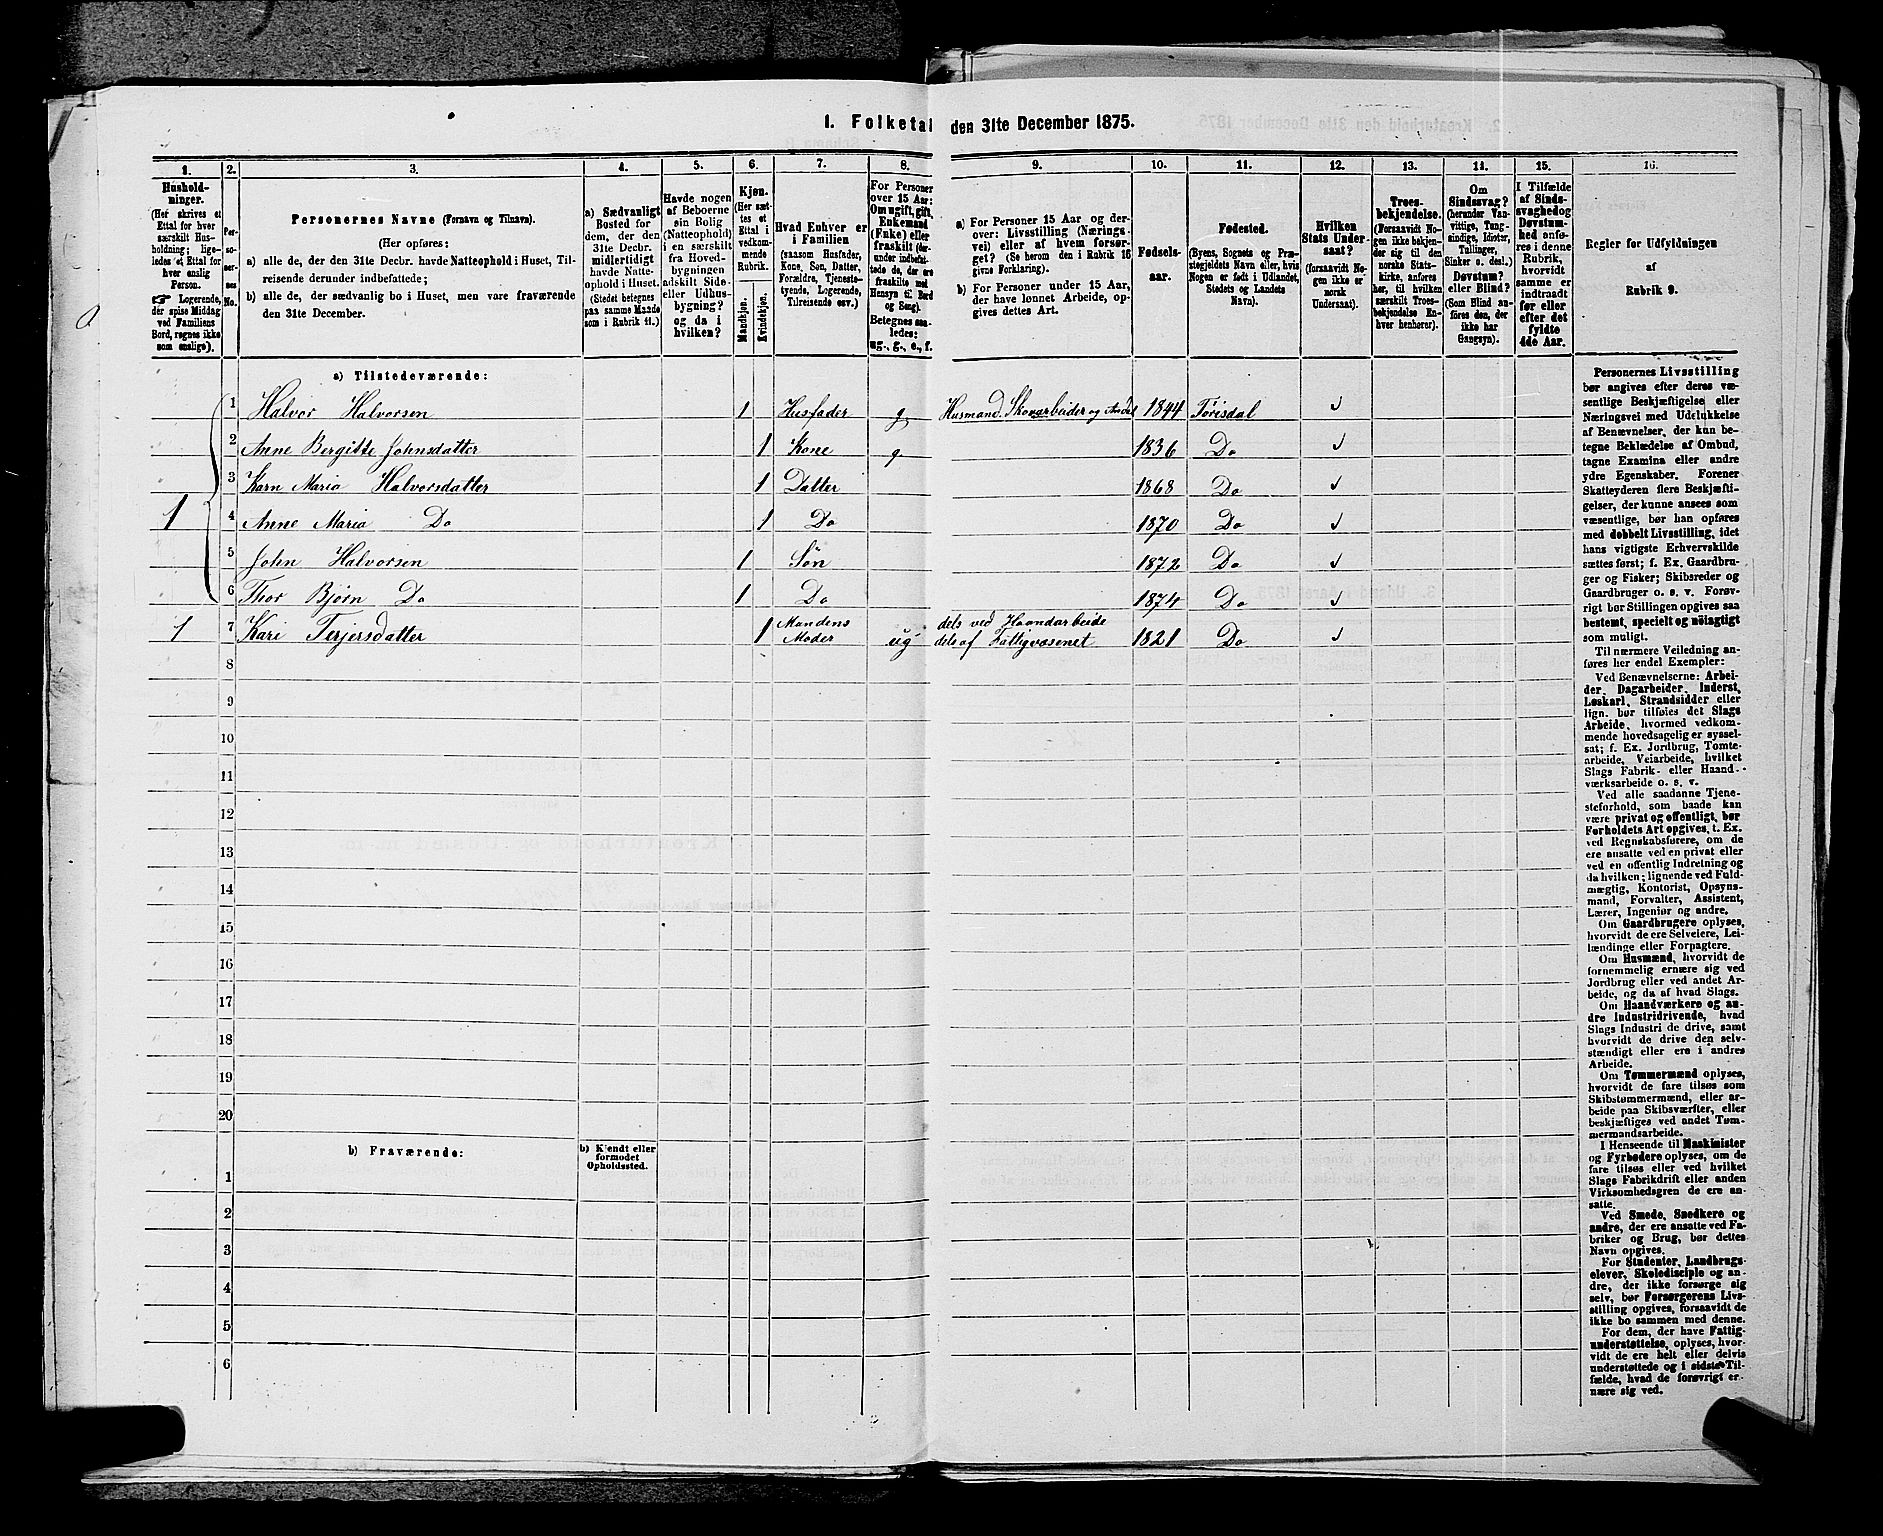 1. Folketal den 31te December 1875.
1. 2. 3. 4. 5. 6. 7. 8. 9. 10. 11. 12. 13. 14. 15. 16.
Husholdninger.
(Her skrives et
Ettal for hver
særskilt Husholdning;
ligeledes et Ettal for
hver enslig
Person.
☞ Logerende,
der spise Middag
ved Familiens
Bord, regnes ikke
som enslige).
Personernes No.
Personernes Navne (Fornavn og Tilnavn).
(Her opføres:
a) alle de, der den 31te Decbr. havde Natteophold i Huset, Tilreisende derunder indbefattede;
b) alle de, der sædvanlig bo i Huset, men vare fraværende
den 31te December.
a) Sædvanligt
Bosted for
dem, der den
31te Decbr.
midlertidigt
havde Natteophold
i Huset.
(Stedet betegnes
paa samme Maade
som i Rubrik 11.)
Havde nogen
af Beboerne
sin Bolig
(Natteophold)
i en særskilt
fra Hovedbygningen
adskilt Side-
eller Udhusbygning?
og da i
hvilken?
Kjøn.
(Her sættes
et
Ettal i
vedkommende
Rubrik.
Mandkjøn.
Kvindekjøn.
Hvad Enhver er
i Familien
(saasom Husfader,
Kone, Søn, Datter,
Forældre, Tjenestetyende,
Logerende,
Tilreisende osv.)
For Personer
over 15 Aar:
Om ugift, gift,
Enkemand
(Enke) eller
fraskilt (derunder
indbefattede
de, der ere
fraskilte med
Hensyn til Bord
og Seng).
Betegnes saaledes:
ug., g., e., f.
a) For Personer 15 Aar og derover:
Livsstilling (Næringsvei)
eller af hvem forsørget?
(Se herom den i Rubrik 16
givne Forklaring).
b) For Personer under 15 Aar,
der have lønnet Arbeide, opgives
dettes Art.
Fødselsaar.
Fødested.
(Byens, Sognets og Præstegjeldets
Navn eller, hvis
Nogen er født i Udlandet,
Stedets og Landets
Navn).
Hvilken
Stats Undersaat?
(forsaavidt Nogen
ikke er
norsk
Undersaat).
Troesbekjendelse.
(Forsaavidt Nogen
ikke bekjender
sig til den
norske Statskirke,
anføres
her, til hvilken
særskilt Troesbekjendelse
Enhver
henhører).
Om
Sindssvag?
(herunder Vanvittige,
Tungsindige,
Idioter,
Tullinger,
Sinker o. desl.)
Døvstum?
eller Blind?
(Som Blind anføres
den, der
ikke har
Gangsyn).
I Tilfælde
af Sindssvaghed
og
Døvstumhed
anføres
i denne
Rubrik,
hvorvidt
samme er
indtraadt
før eller
efter det
fyldte
4de Aar.
Regler for Udfyldningen
af
Rubrik 9.
a) Tilstedeværende:
1 Halvor Halvorsen 1 Husfader g Husmand. Skovarbeider og 1844 Tørisdal
2 Anne Bergitte Johnsdatter 1 Kone g 1836 Do
3 Karn Maria Halvorsdatter 1 Datter 1868 Do
1 4 Anne Maria Do 1 Do 1870 Do
5 John Halvorsen 1 Søn 1872 Do
6 Thor Bjørn Do 1 Do 1874 Do
1 7 Kari Terjersdatter 1 Mandens Moder ug dels ved Haandarbeide dels af Fattigvæsenet 1821 Do
8
9
10
11
12
13
14
15
16
17
18
19
20
b) Fraværende:
b) Kjendt eller
formodet
Opholdssted.
1
2
3
4
5
6
Personernes Livsstilling
bør angives efter deres væsentlige
Beskjæftigelse eller
Næringsvei med Udelukkelse
af Benævnelser, der kun betegne
Beklædelse af Ombud,
tagne Examina eller andre
ydre Egenskaber. Forener
Skatteyderen flere Beskjæftigelser,
der kunne ansees som
væsentlige, bør han opføres
med dobbelt Livsstilling, idet
hans vigtigste Erhvervskilde
sættes først; f. Ex. Gaardbruger
og Fisker; Skibsreder og
Gaardbruger o. s. v. Forøvrigt
bør Stillingen opgives saa
bestemt, specielt og nøiagtigt
som muligt.
Til nærmere Veiledning anføres
her endel Exempler:
Ved Benævnelserne: Arbeider,
Dagarbeider, Inderst,
Løskarl, Strandsidder eller
lign. bør tilføies det Slags
Arbeide, hvormed vedkommende
hovedsagelig er sysselsat;
f. Ex. Jordbrug, Tomtearbeide,
Veiarbeide, hvilket
Slags Fabrik- eller Haandværksarbeide
o. s. v.
Ved alle saadanne Tjenesteforhold,
som baade kan
være privat og offentligt, bør
Forholdets Art opgives, t. Ex.
ved Regnskabsførere, om de
ere ansatte ved en privat eller
ved en offentlig Indretning og
da hvilken; lignende ved Fuldmægtig,
Kontorist, Opsynsmand,
Forvalter, Assistent,
Lærer, Ingeniør og andre.
Om Gaardbrugere oplyses,
hvorvidt de ere Selveiere, Leilændinge
eller Forpagtere.
Om Husmænd, hvorvidt de
fornemmelig ernære sig ved
Jordbrug eller ved andet Arbeide,
og da af hvad Slags.
Om Haandværkere og andre
Industridrivende, hvad
Slags Industri de drive, samt
hvorvidt de drive den selvstændigt
eller ere i andres
Arbeide.
Om Tømmermænd oplyses,
hvorvidt de fare tilsøs som
Skibstømmermænd, eller arbeide
paa Skibsværfter, eller
beskjæftiges ved andet Tømmermandsarbeide.
I Henseende til Maskinister
og Fyrbødere oplyses, om de
fare tilsøs eller ved hvilket
Slags Fabrikdrift eller anden
Virksomhedsgren de ere ansatte.
Ved Smede, Snedkere og
andre, der ere ansatte ved Fabriker
og Brug, bør dettes
Navn opgives.
For Studenter, Landbrugselever,
Skoledisciple og andre,
der ikke forsørge sig
selv, bør Forsørgerens Livsstilling
opgives, forsaavidt de
ikke bo sammen med denne.
For dem, der have Fattigunderstøttelse,
oplyses, hvorvidt
de ere helt eller delvis
understøttede og i sidste Tilfælde,
hvad de forøvrigt ernære
sig ved.